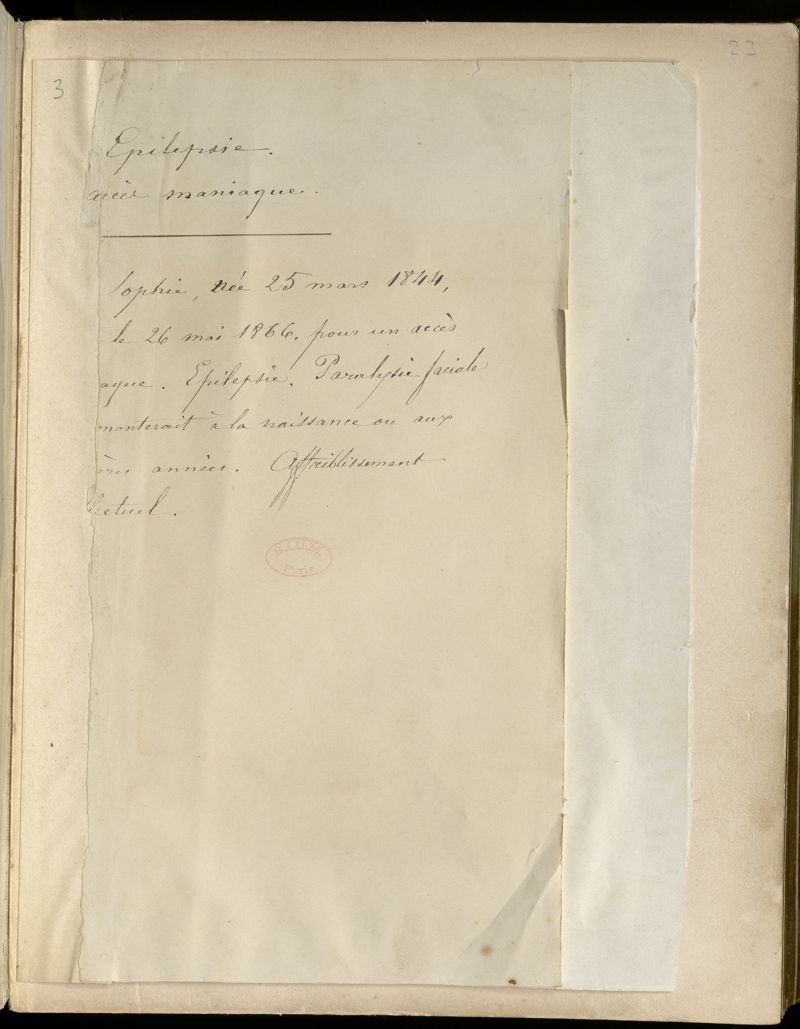 23
3
Epilepsie.
accès maniaque.
Sophie, née 25 mars 1844,
le 26 mai 1866. pour un accès
aque. Epilepsie. Paralysie faciale
monterait à la naissance ou aux
ères années. Affaiblissement
llectuel.
B.I.U.M.
Paris